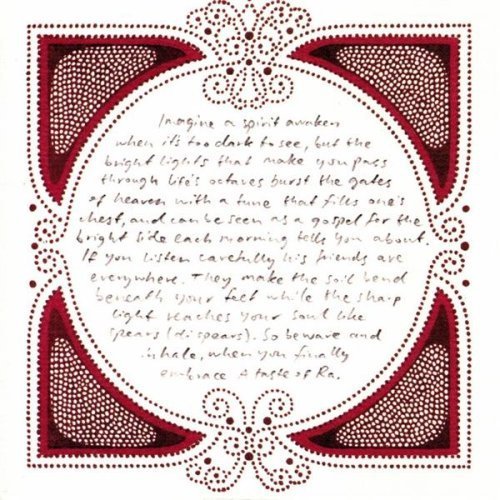 Imagine a spirit awaken
when it's too dark to see, but the
bright lights that make you pass
through life's octaves burst the gates
of heaven with a tune that fills one's
chest, and can be seen as a gospel for the
bright side each morning tells you about.
If you listen carefully his friends are
everywhere. They make the soil bend
beneath your feet while the sharp
light reaches your soul like
spears (dispears). So beware and
inhale, when you finally
embrace A taste of Ra.